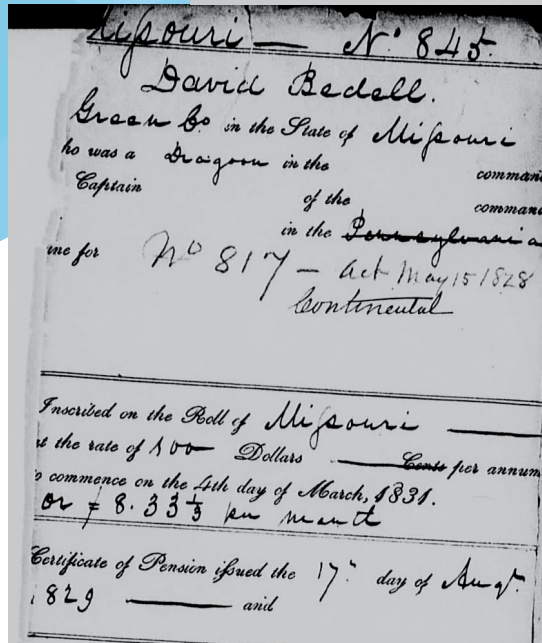 Missouri — No. 845.
David Bedell.
Green Co in the State of Missouri
ho was a Dragoon in the comman
Captain of the comman
in the Pennsylvania
ine for No 817 — Act May 15 1828
Continental
Inscribed on the Roll of Missouri —
at the rate of 100 Dollars — Cents per annum
o commence on the 4th day of March, 1831.
or $8.33 1/3 per month
Certificate of Pension issued the 17th day of Augt.
1829 — and